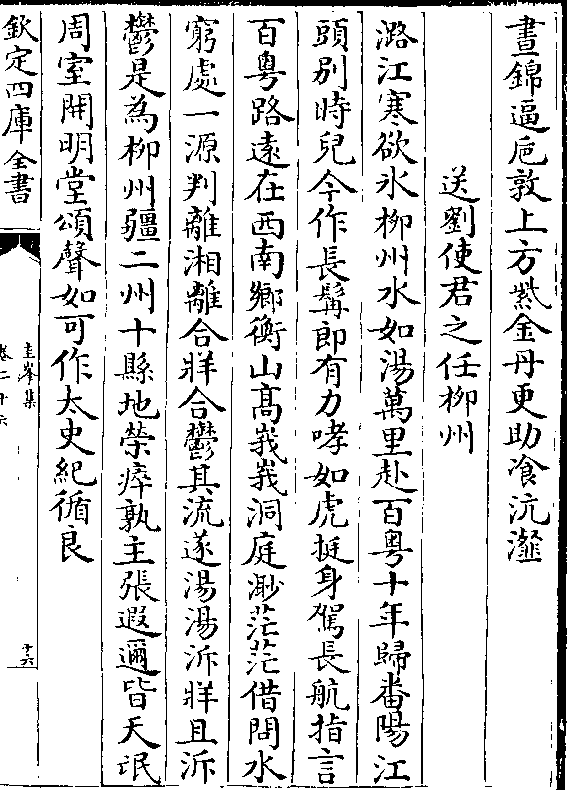 晝錦逼巵敦上方煑金丹更助飡沆瀣
送劉使君之任柳州
潞江寒欲氷柳州水如湯萬里赴百粤十年歸番陽江
頭别時兒今作長髯郎有力哮如虎挺身駕長航指言
百粤路遠在西南鄉衡山髙峩峩洞庭渺茫茫借問水
窮處一源判離湘離合牂合鬱其流遂湯湯泝牂且泝
鬱是為柳州疆二州十縣地榮瘁孰主張遐邇皆天氓
周室開明堂頌聲如可作太史紀循良
欽定四庫全書
圭峯集
卷二十六
十六